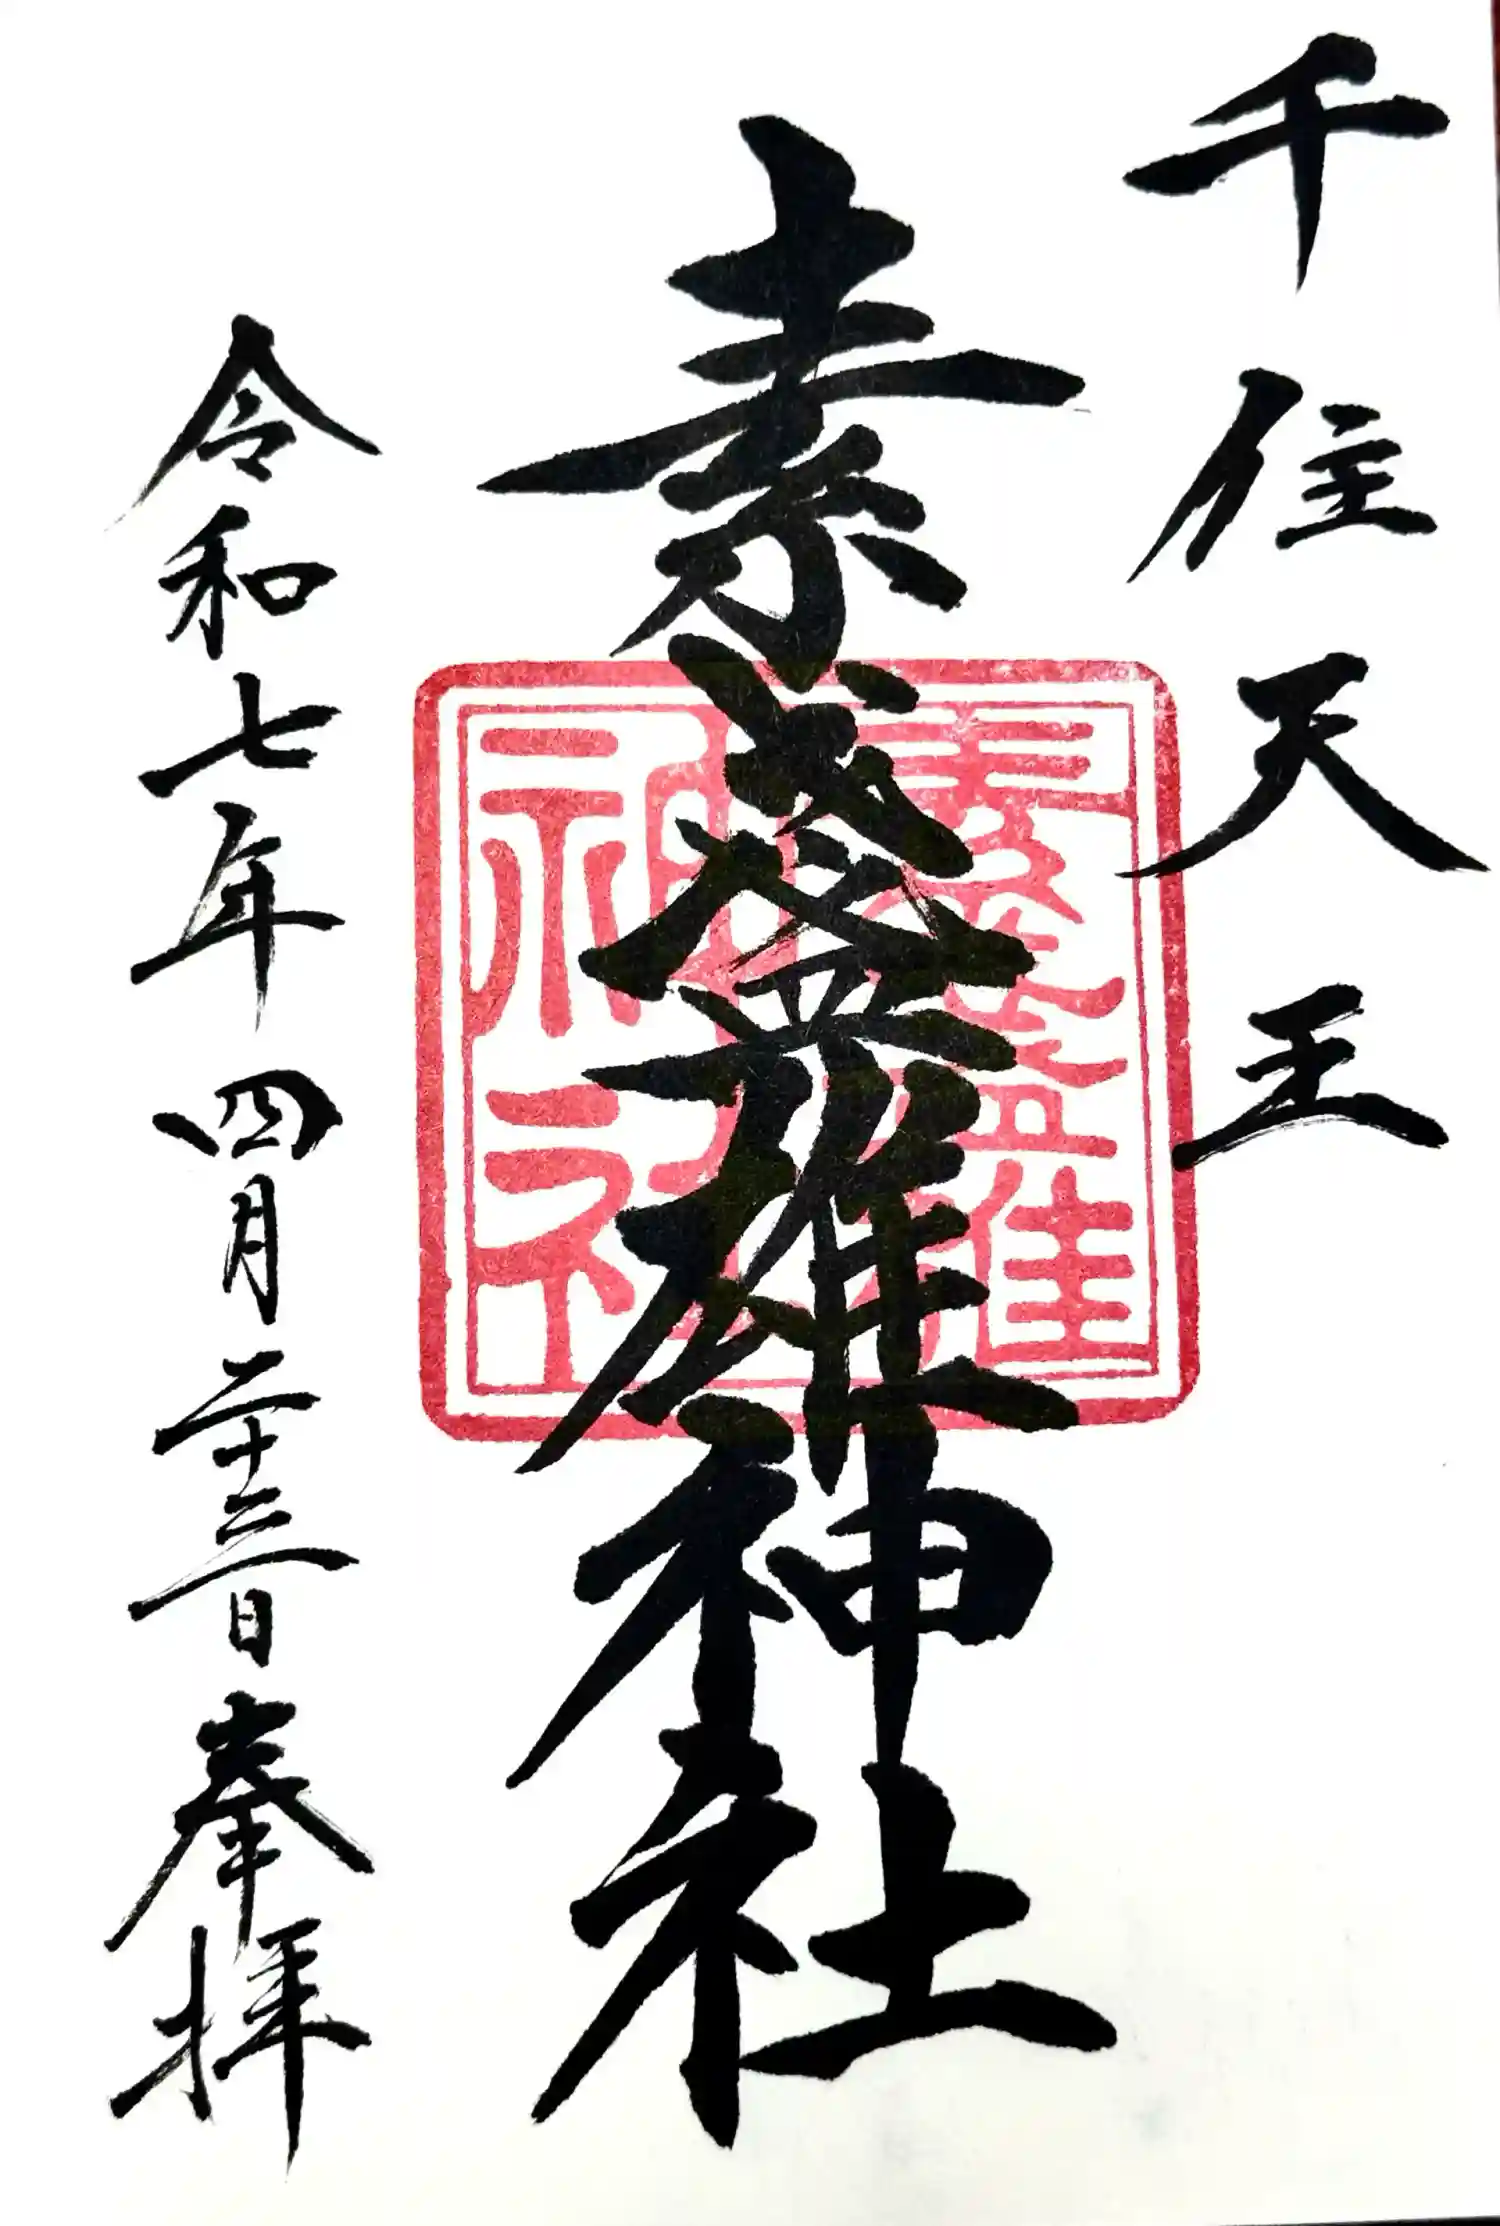 千住天王
素盞雄神社
素盞雄
神社
令和七年四月二十三日奉拝